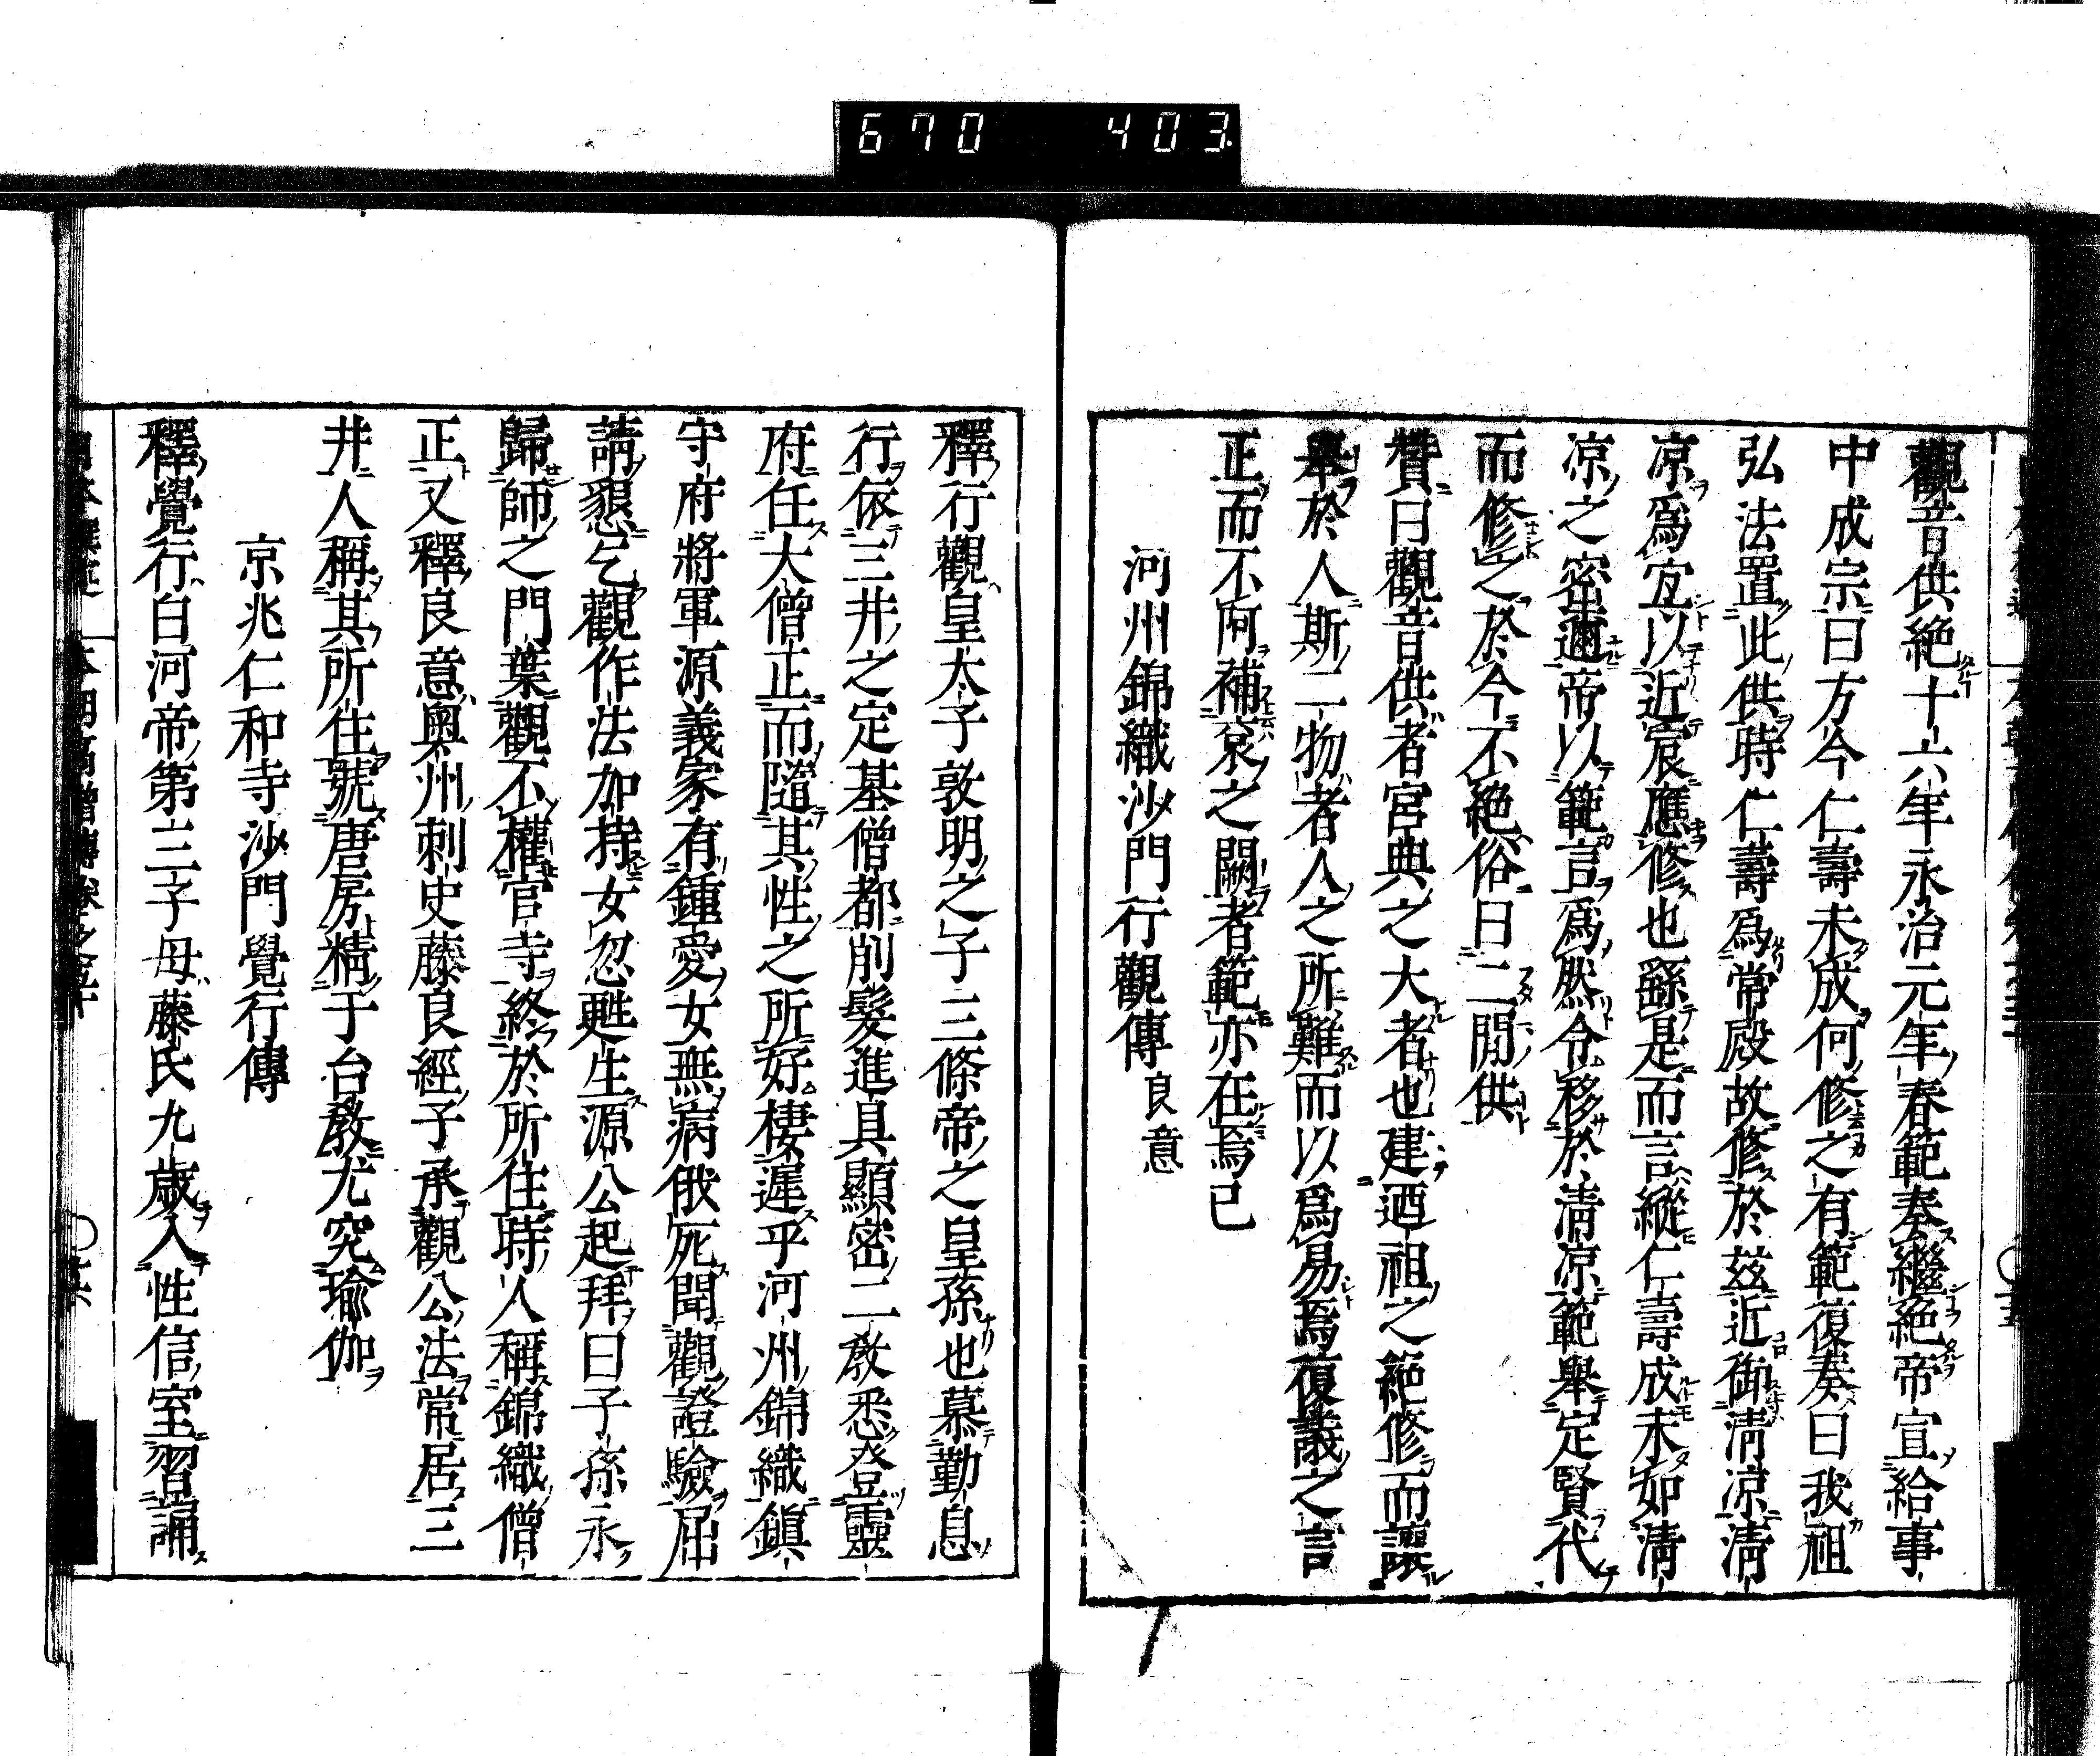 670 403
觀音供絶十六年永治元年春範奏繼絶帝宣給事
中成宗曰方今仁壽未成何修之有範復奏曰我祖
弘法置此供時仁壽爲常殿故修於茲近御淸凉淸
凉爲宜以近宸應修也繇是而言縱仁壽成未如淸
凉之密邇帝以範言爲然令移於淸凉範舉定賢代
而修之於今不絶俗曰二間供
贊曰觀音供者宮典之大者也建迺祖之絶修而讓
舉於人斯二物者人之所難而以爲易焉復議之言
正而不阿補袞之闕者範亦在焉已
河州錦織沙門行觀傳 良意
釋行觀皇太子敦明之子三條帝之皇孫也慕勤息
行依三井之定基僧都削髮進具顯密二教悉登靈
府任大僧正而隨其性之所好棲遲乎河州錦織鎭
守府將軍源義家有鍾愛女無病俄死聞觀證驗屈
請懇乞觀作法加持女忽甦生源公起拜曰子孫永
歸師之門葉觀不權官寺終於所住時人稱錦織僧
正又釋良意奧州刺史藤良經子承觀公法常居三
井人稱其所住號唐房精于台教尤究瑜伽
京兆仁和寺沙門覺行傳
釋覺行白河帝第三子母藤氏九歲入性信室習誦